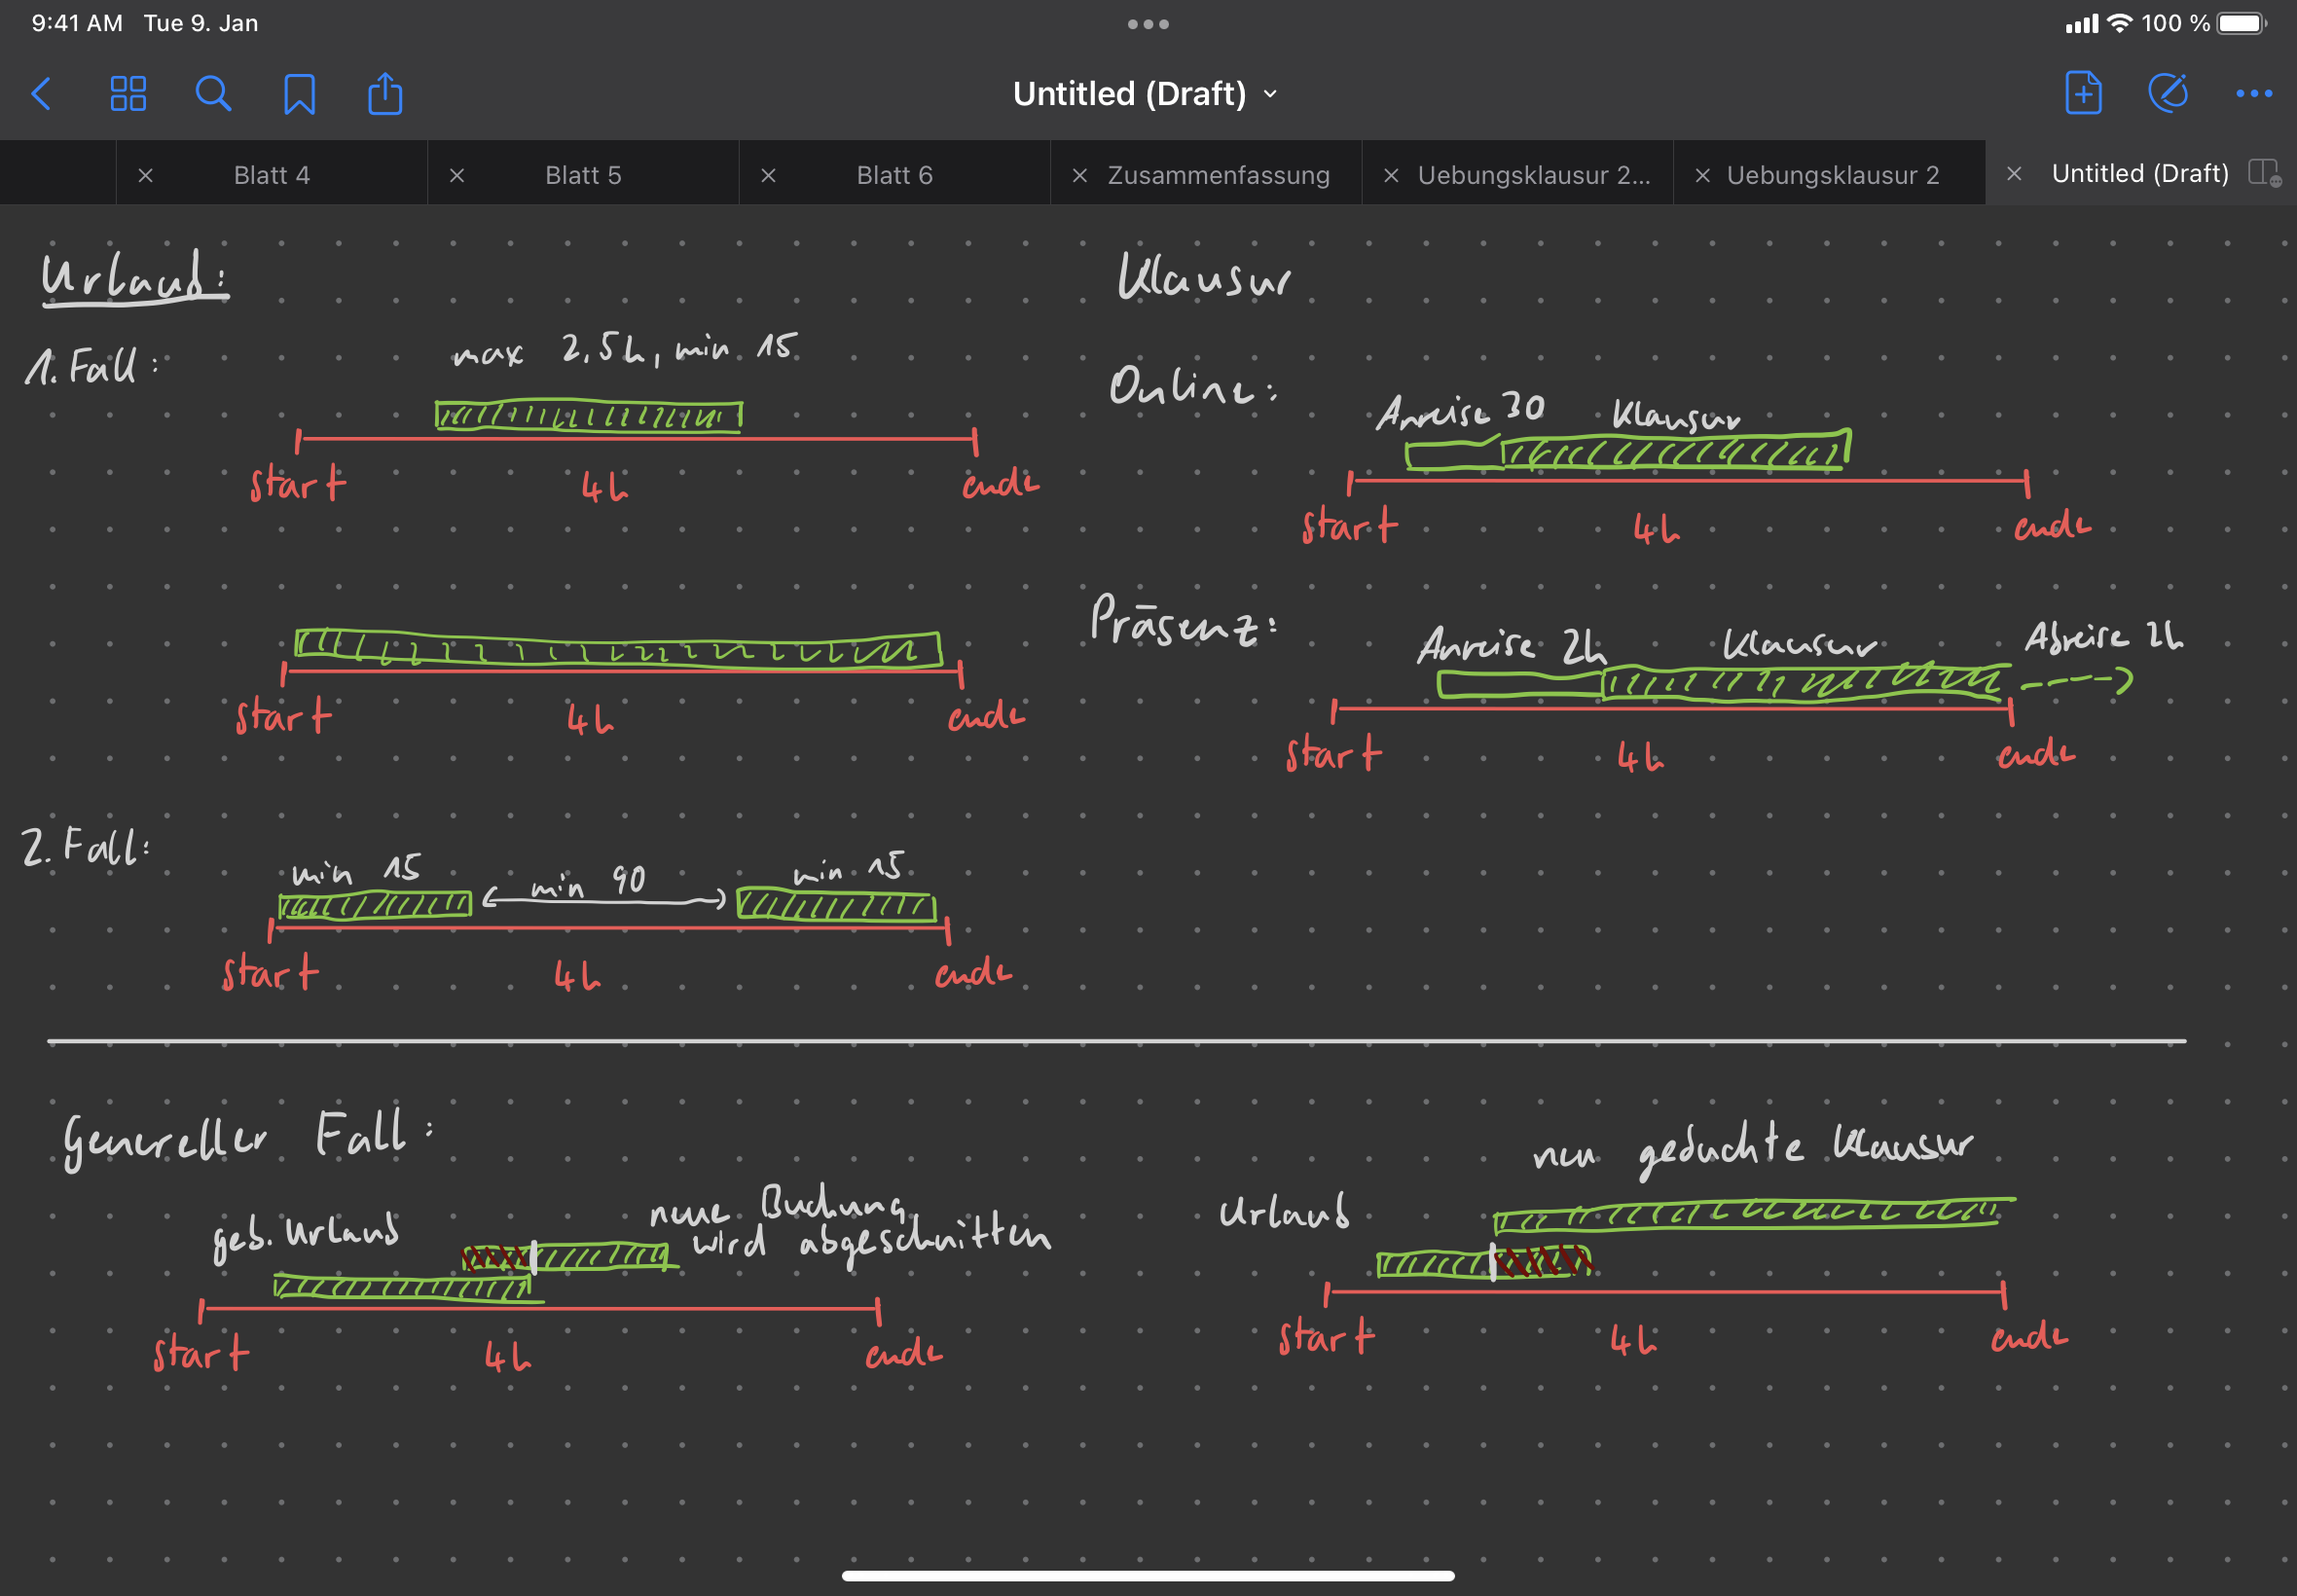 9:41 AM Tue 9. Jan
100 %
Untitled (Draft)
Blatt 4
Blatt 5
Blatt 6
Zusammenfassung
Uebungsklausur 2...
Uebungsklausur 2
Untitled (Draft)
Urlaub:
1. Fall:
max 2,5h, min 15
start 4h ende
start 4h ende
2. Fall:
min 15 min 90 min 15
start 4h ende
Klausur
Online:
Anreise 30 Klausur
start 4h ende
Präsenz:
Anreise 2h Klausur Abreise 2h
start 4h ende
Genereller Fall:
geb. Urlaub
neue Buchung
wird abgeschnitten
start 4h ende
neu gebuchte Klausur
Urlaub
start 4h ende